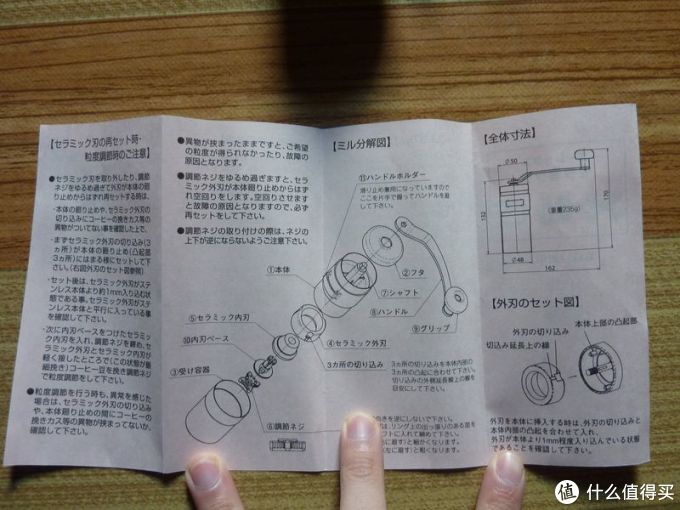 【セラミック刃の再セット時・
粒度調節時のご注意】
●セラミック刃を取り外したり、調節
ネジをゆるめ過ぎて外刃が本体の廻
り止めからはずれ再セットする時は、
・本体の廻り止めや、セラミック外刃の
切り込みにコーヒーの挽きカス等の
異物がついてない事を確認した上で、
・まずセラミック外刃の切り込み(3
ヵ所)が本体の廻り止め(凸起部
3ヵ所)にはまる様にセットして下
さい。(右図外刃のセット図参照)
・セット後は、セラミック外刃がステ
ンレス本体より約1mm入り込む状
態である事。セラミック外刃がステ
ンレス本体と平行に入っている事
を確認して下さい。
・次に内刃ベースをつけたセラミッ
ク内刃を入れ、調節ネジを締め、セ
ラミック外刃とセラミック内刃が
軽く接したところで(この状態が最
細挽き)コーヒー豆を挽き調節ネジ
で粒度調節をして下さい。
●粒度調節を行う時も、異常を感じた
場合は、セラミック外刃の切り込み
や、本体廻り止めの間にコーヒーの
挽きカス等の異物が挟まってないか、
確認して下さい。
●異物が挟まったままですと、ご希望
の粒度が得られなかったり、故障の
原因となります。
●調節ネジをゆるめ過ぎますと、セラ
ミック外刃が本体廻り止めからはず
れ空回りをします。空回りさせます
と故障の原因となりますので、必ず
再セットをして下さい。
●調節ネジの取り付けの際は、ネジの
上下が逆にならないようご注意下さい。
【ミル分解図】
⑪ハンドルホルダー
滑り止め兼用になっていますので
ここを片手で握ってハンドルを廻
して下さい。
①本体
②フタ
⑦シャフト
⑧ハンドル
⑨グリップ
⑤セラミック内刃
⑩内刃ベース
③受け容器
④セラミック外刃
3カ所の切り込み
3ヵ所の切り込みを本体内部の
3ヵ所の凸起に合わせて下さい。
切り込みの外側延長線上の線を
目安にして下さい。
⑥調節ネジ
向きを逆にしないで下さい。
は、リング上の出っ張りのある面を
フトに入れて締めて下さい。
に廻す)と細かくなります。
(左に廻す)と粗くなります。
【全体寸法】
φ50
132
(重量235g)
170
φ48
162
【外刃のセット図】
外刃の切り込み
本体上部の凸起部
切込み延長上の線
外刃を本体に挿入する時は、外刃の切り込みと
本体内部の凸起を合わせて入れ、
外刃が本体より1mm程度入り込んでいる状態
であることを確認して下さい。
值 什么值得买